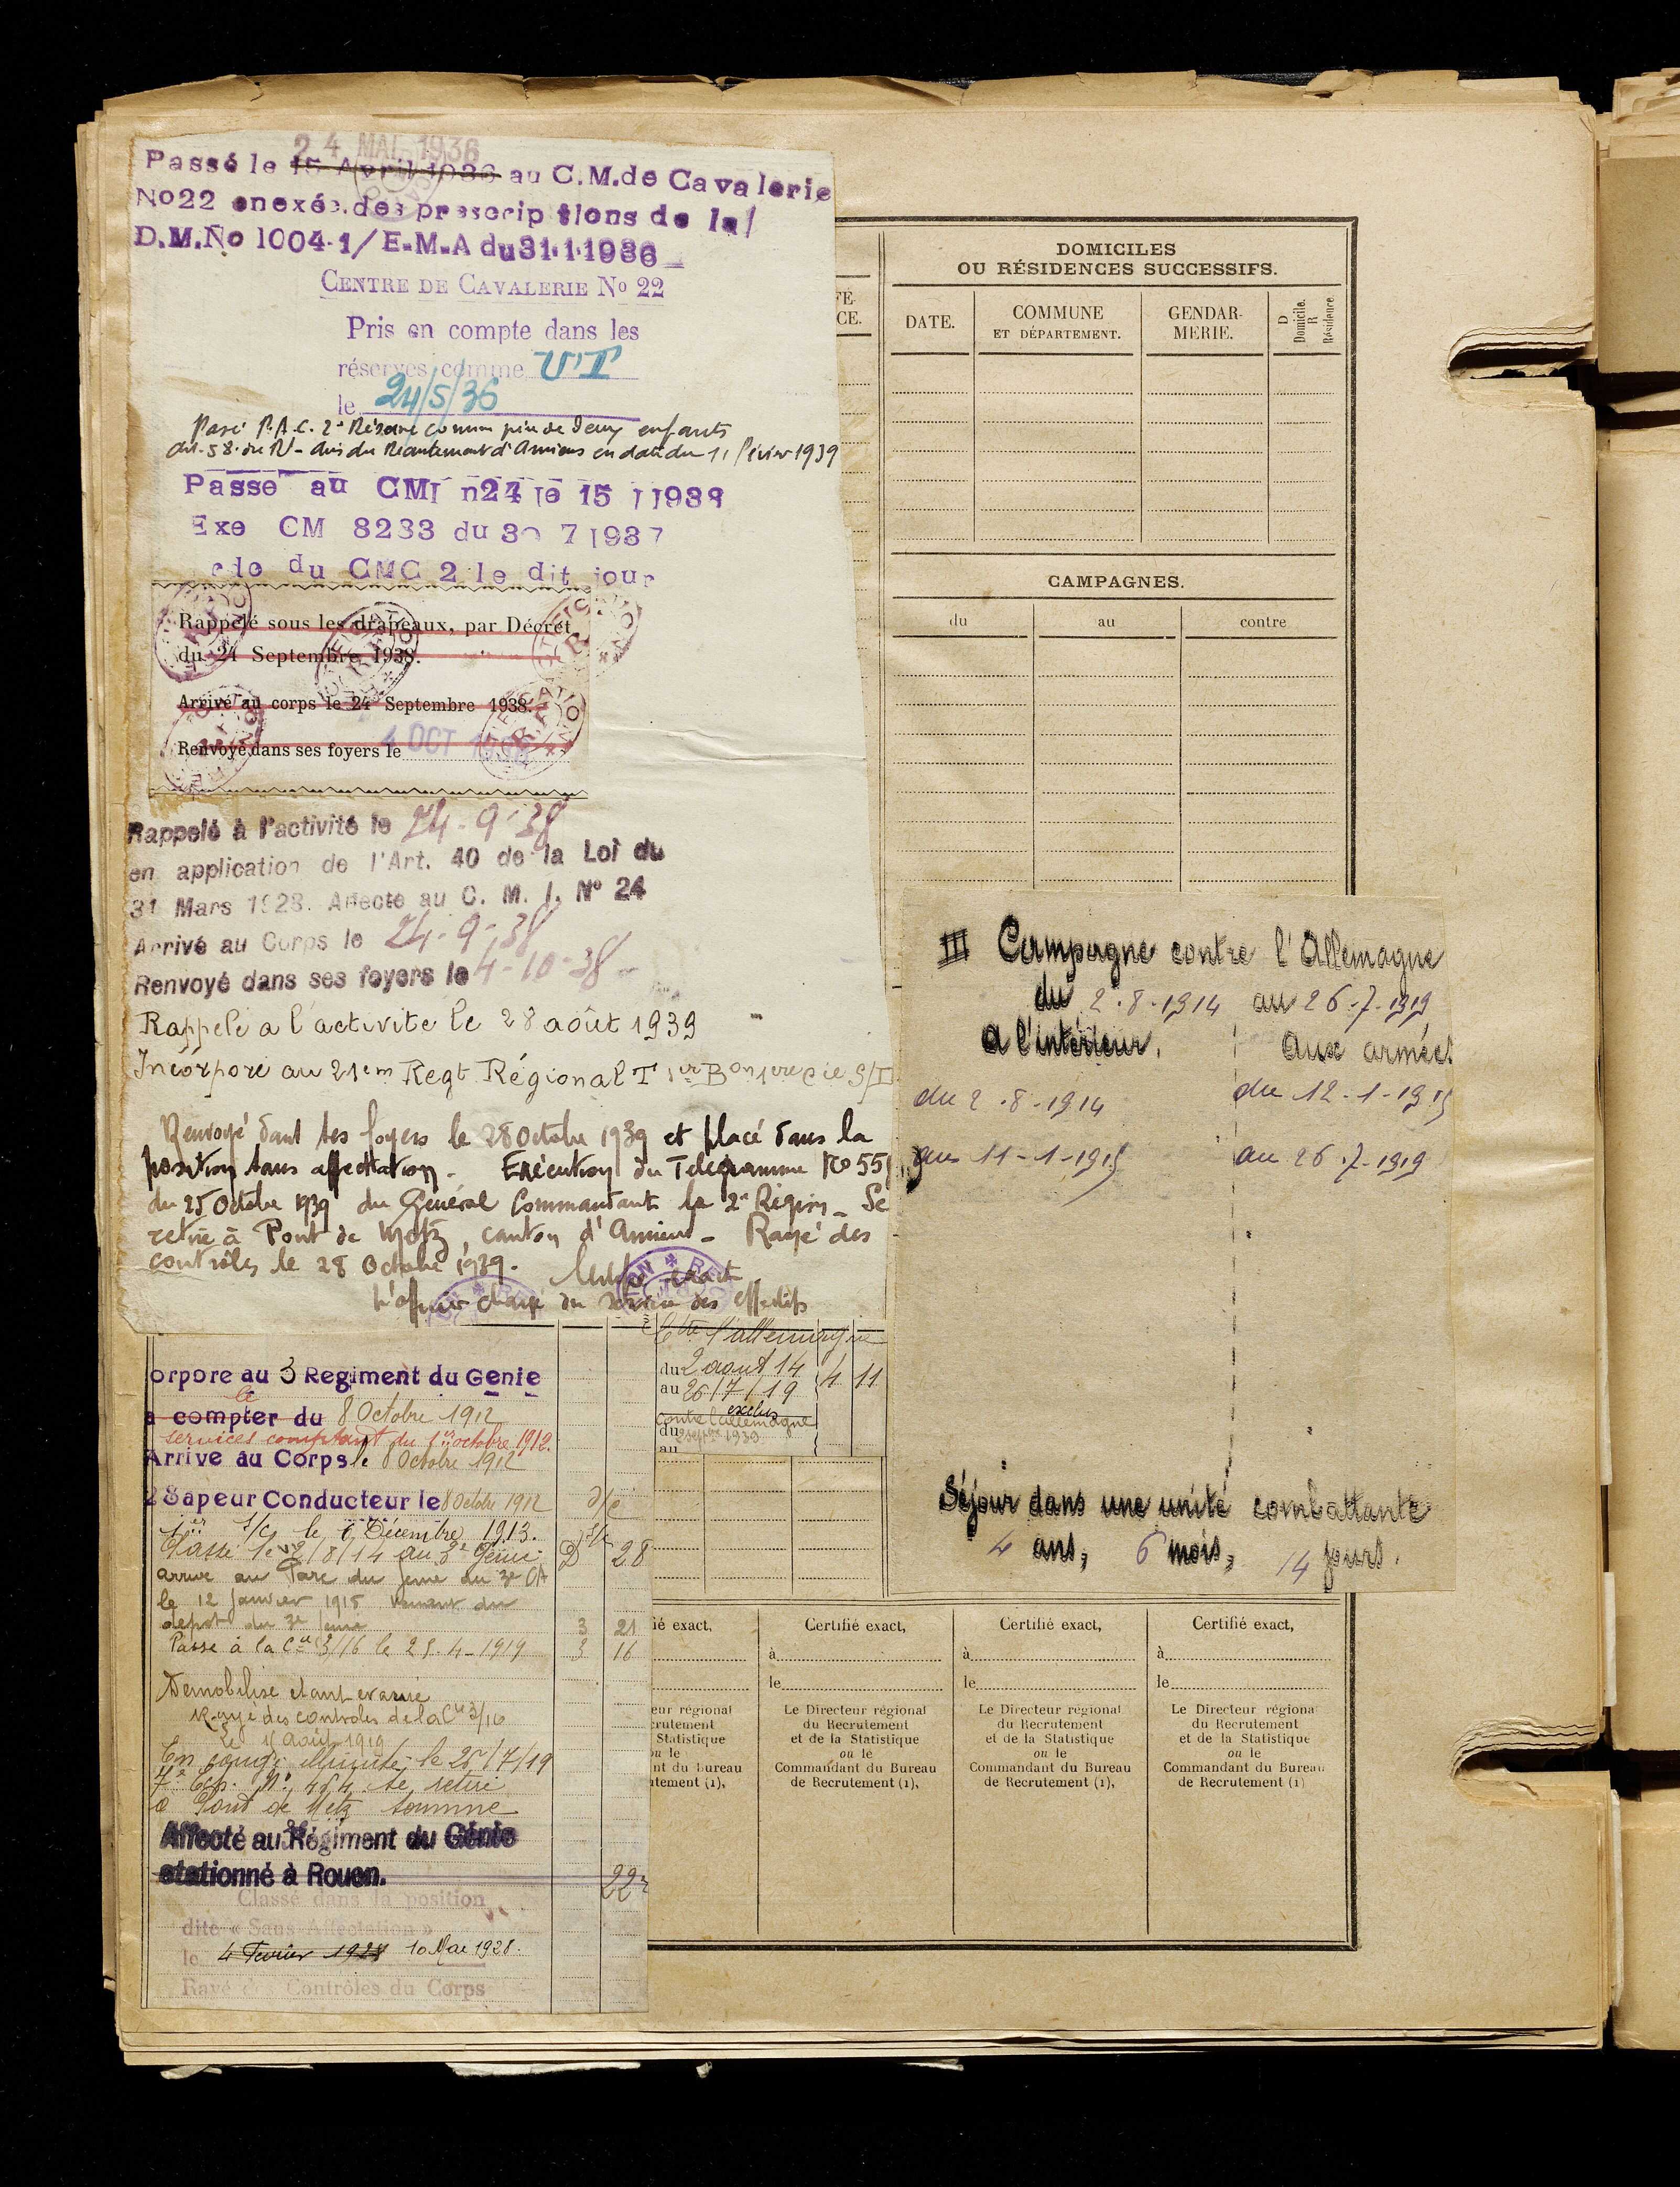 24 MAI 1936
Passé le 15 Avril 1936 au C.M.de Cavalerie
No22 en exé. des prescriptions de la
D.M.No 1004-1/E.M.A du 31.1.1936
CENTRE DE CAVALERIE No 22
Pris en compte dans les
réserves comme VT
le 24/5/36
Passé P.A.C. 2e Réserve comme père de deux enfants
art. 58 du - avis du Recrutement d'Amiens en date du 11 février 1939
Passe au CMI n24 le 15 1 1938
Exe CM 8233 du 30 7 1937
du CMC 2 le dit jour
Rappelé sous les drapeaux, par Décret
du 24 Septembre 1938.
Arrivé au corps le 24 Septembre 1938.
Renvoyé dans ses foyers le 4 OCT
Rappelé à l'activité le 24-9-38
en application de l'Art. 40 de la Loi du
31 Mars 1928. Affecté au C. M. I. No 24
Arrivé au Corps le 24-9-38
Renvoyé dans ses foyers le 4-10-38
Rappelé a l'activité le 28 août 1939
Incorporé au 21em Regt Régional T 1er Bon 1ere Cie S/I
Renvoyé dans ses foyers le 28 Octobre 1939 et placé dans la
position sans affectation - Exécution du Télégramme No 55
du 25 Octobre 1939 du Général Commandant la 2e Région - Se
retire à Pont de Metz, canton d'Amiens - Rayé des
contrôles le 28 Octobre 1939.
L'officier chargé du service des effectifs
orpore au 3 Regiment du Genie
a compter du le 8 Octobre 1912
services comptant du 1er octobre 1912.
Arrive au Corps le 8 Octobre 1912
2 Sapeur Conducteur le 8 Octobre 1912
1er s/c le 6 Décembre 1913.
Classé le 2/8/14 au 3e Génie D 28
arrivé au Parc du Génie du 3e CA
le 12 Janvier 1915 venant du
depot du 3e Genie 3 21
Passé à la Cie 3/16 le 28-4-1919 3 16
Demobilisé
Rayé des controles de la Cie 3/16
Le 15 Août 1919
En congé illimité le 26/7/19
7e Ech. No 464 se retire
a Pont de Metz Somme
Affecté au 3e Régiment du Génie
stationné à Rouen.
Classé dans la position
dite « Sans Affectation »
le 4 Fevrier 1928 10 Mai 1928.
Rayé des Contrôles du Corps
Cte l'allemagne
du 2 aout 14
au 26/7/19 4 11
exclus
contre l'allemagne
du 2 sept 1939
au
DOMICILES
OU RÉSIDENCES SUCCESSIFS.
DATE.
COMMUNE
ET DÉPARTEMENT.
GENDAR-
MERIE.
D
Domicile.
R
Résidence.
CAMPAGNES.
du au contre
III Campagne contre l'Allemagne
du 2.8.1914 au 26.7.1919
A l'intérieur. Aux armées
du 2.8.1914 du 12-1-1915
au 11-1-1915 au 26.7.1919
Séjour dans une unité combattante
4 ans, 6 mois, 14 jours.
ié exact, Certifié exact, Certifié exact, Certifié exact,
à à à
le le le
eur régional Le Directeur régional Le Directeur régional Le Directeur régional
crutement du Recrutement du Recrutement du Recrutement
Statistique et de la Statistique et de la Statistique et de la Statistique
ou le ou le ou le ou le
nt du Bureau Commandant du Bureau Commandant du Bureau Commandant du Bureau
utement (1), de Recrutement (1), de Recrutement (1), de Recrutement (1)